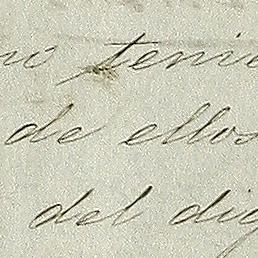 no tenie
de ellos
del dig